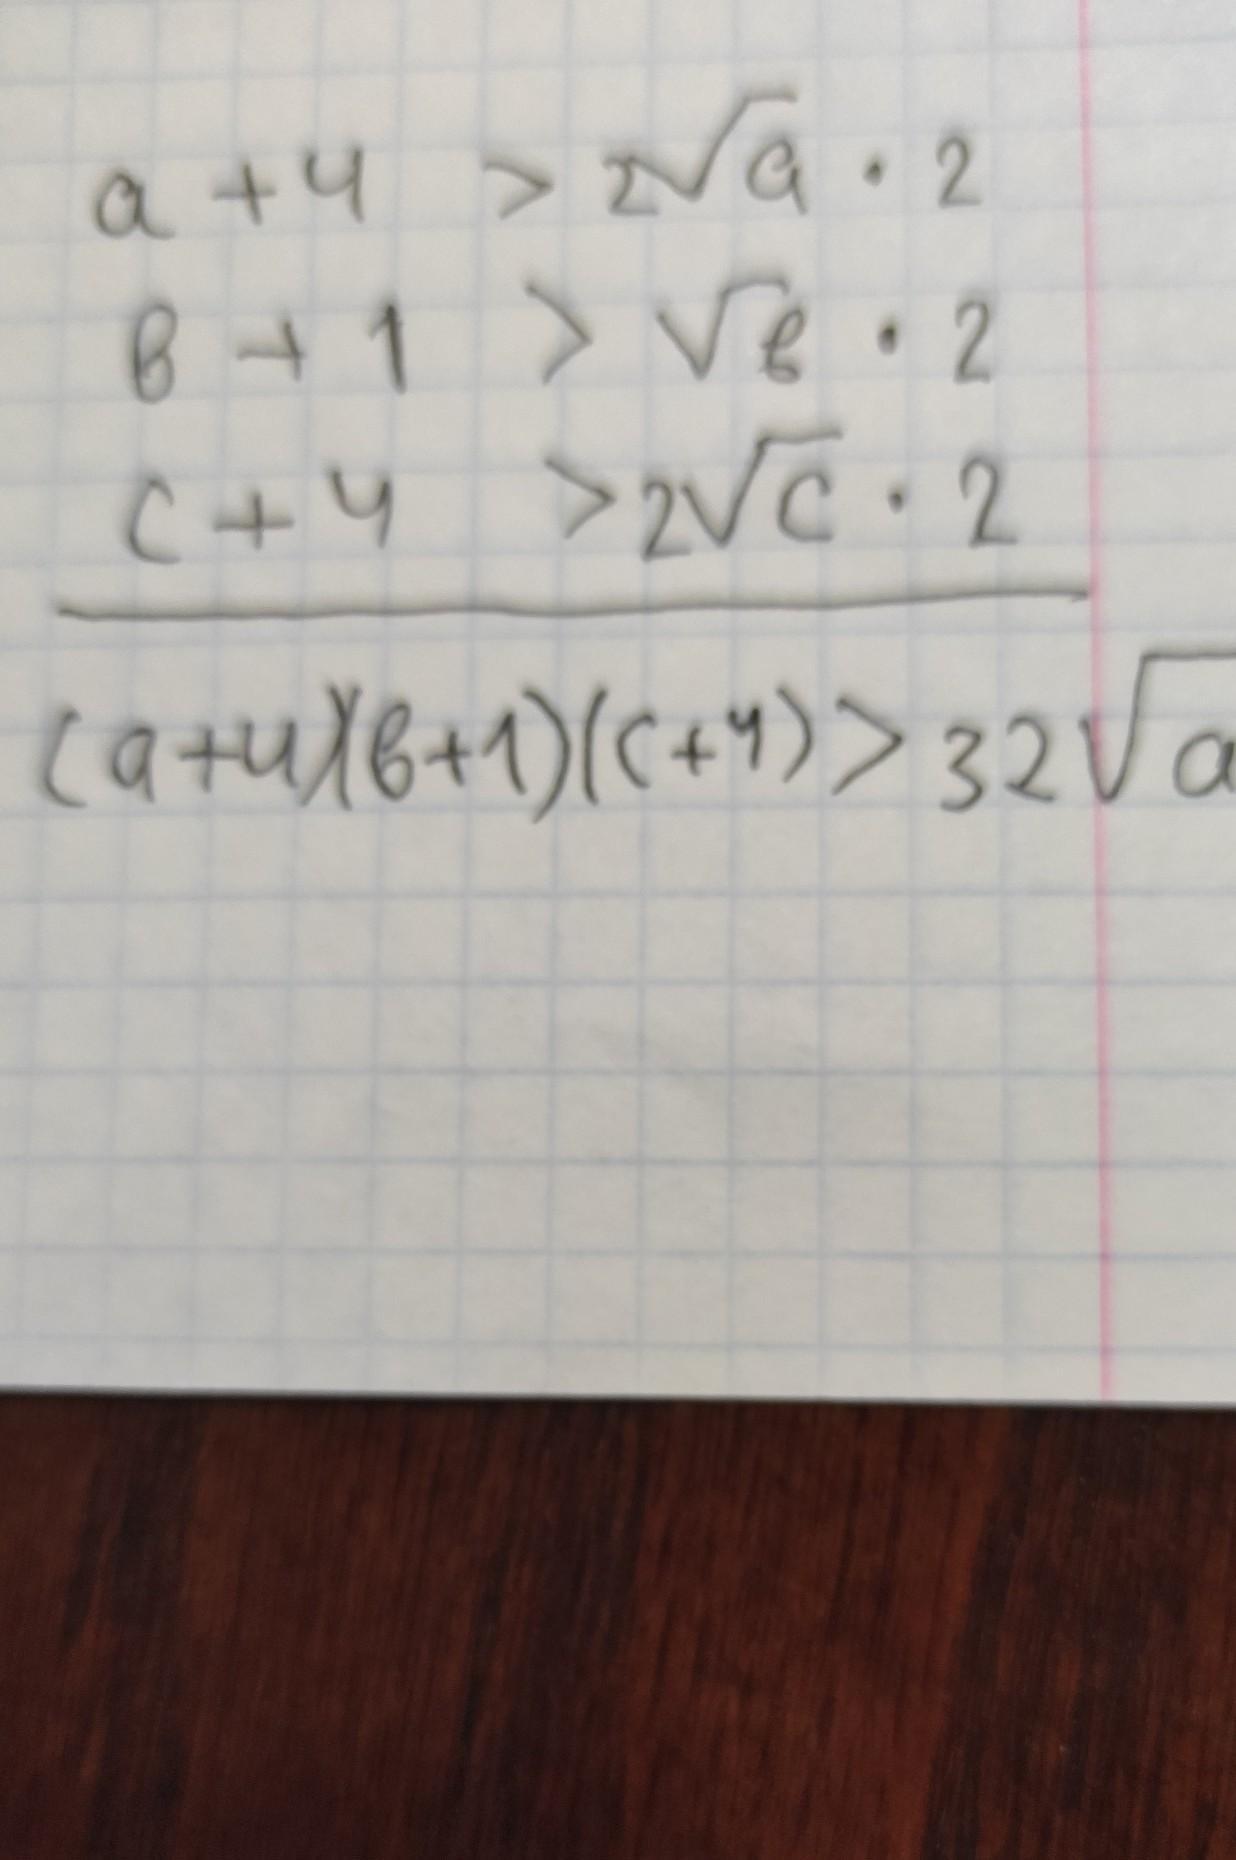 a + 4 > 2√a · 2
в + 1 > √в · 2
c + 4 > 2√c · 2
(a+4)(в+1)(c+4) > 32√a